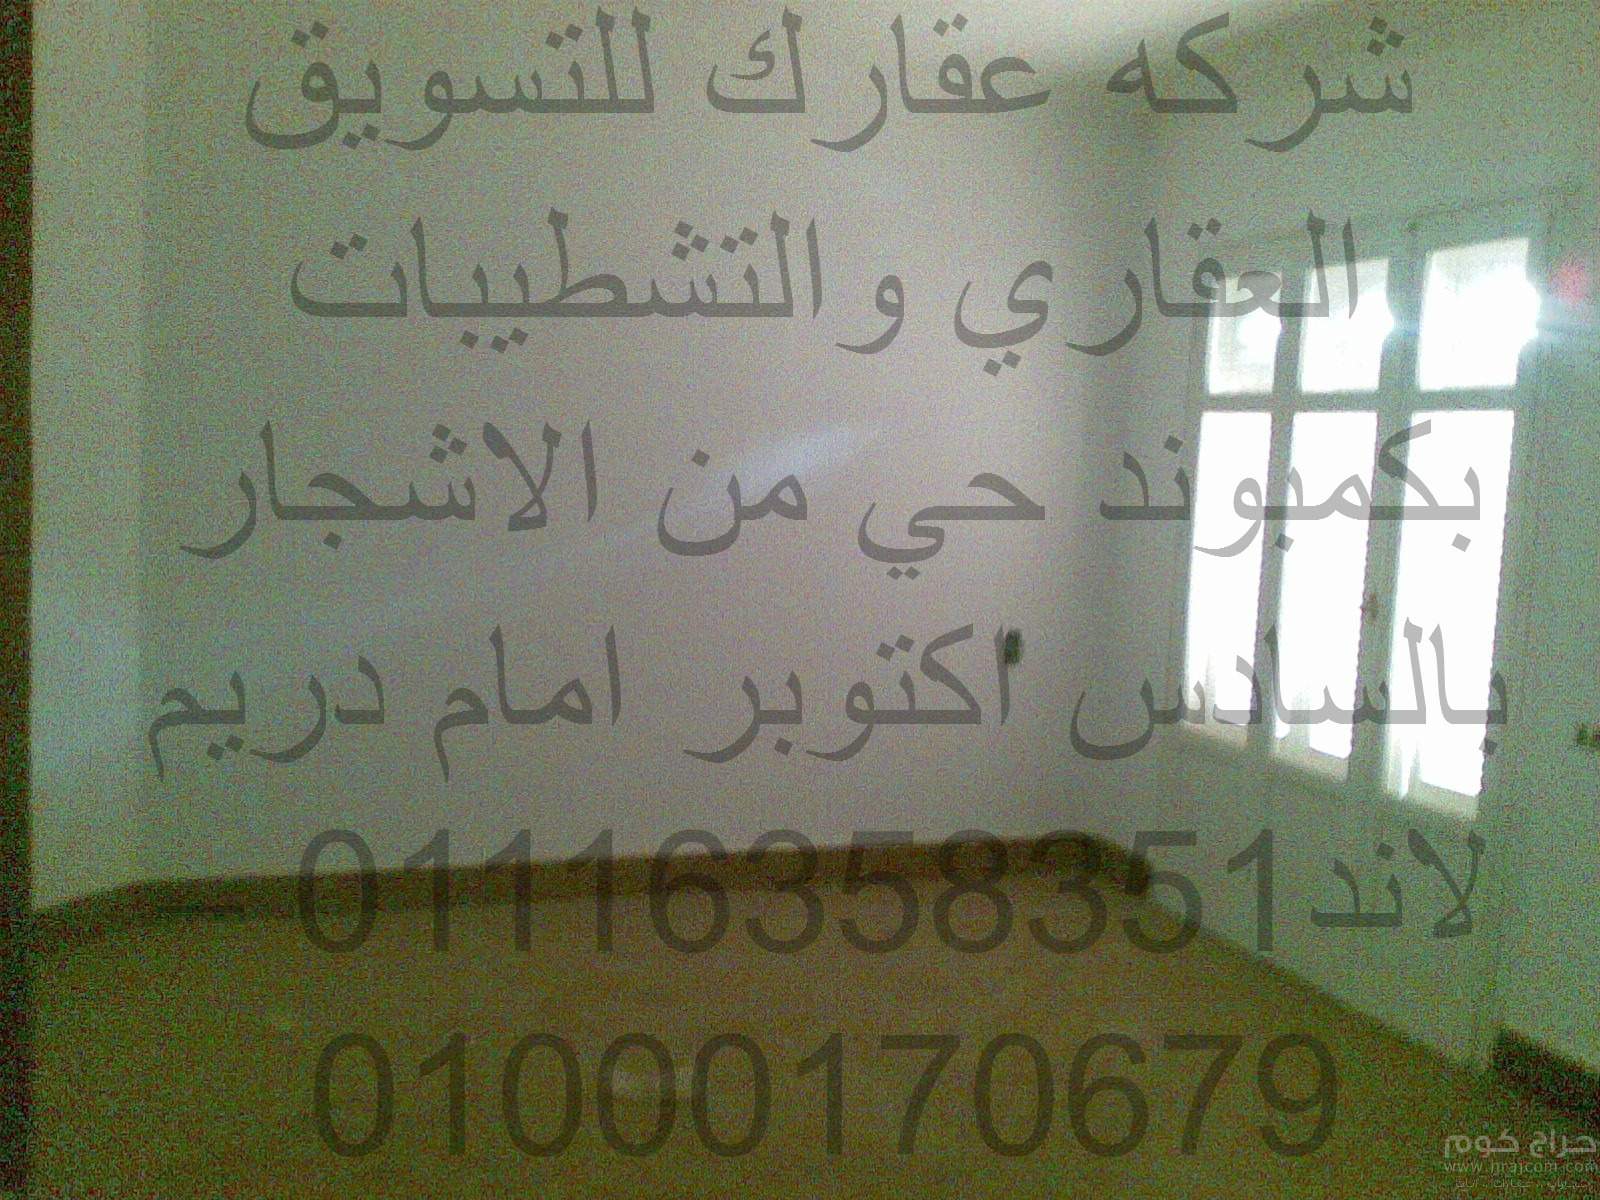 شركه عقارك للتسويق
العقاري والتشطيبات
بكمبوند حي من الاشجار
بالسادس اكتوبر امام دريم
لاند01116358351 –
01000170679
حراج كوم
www.hrajcom.com